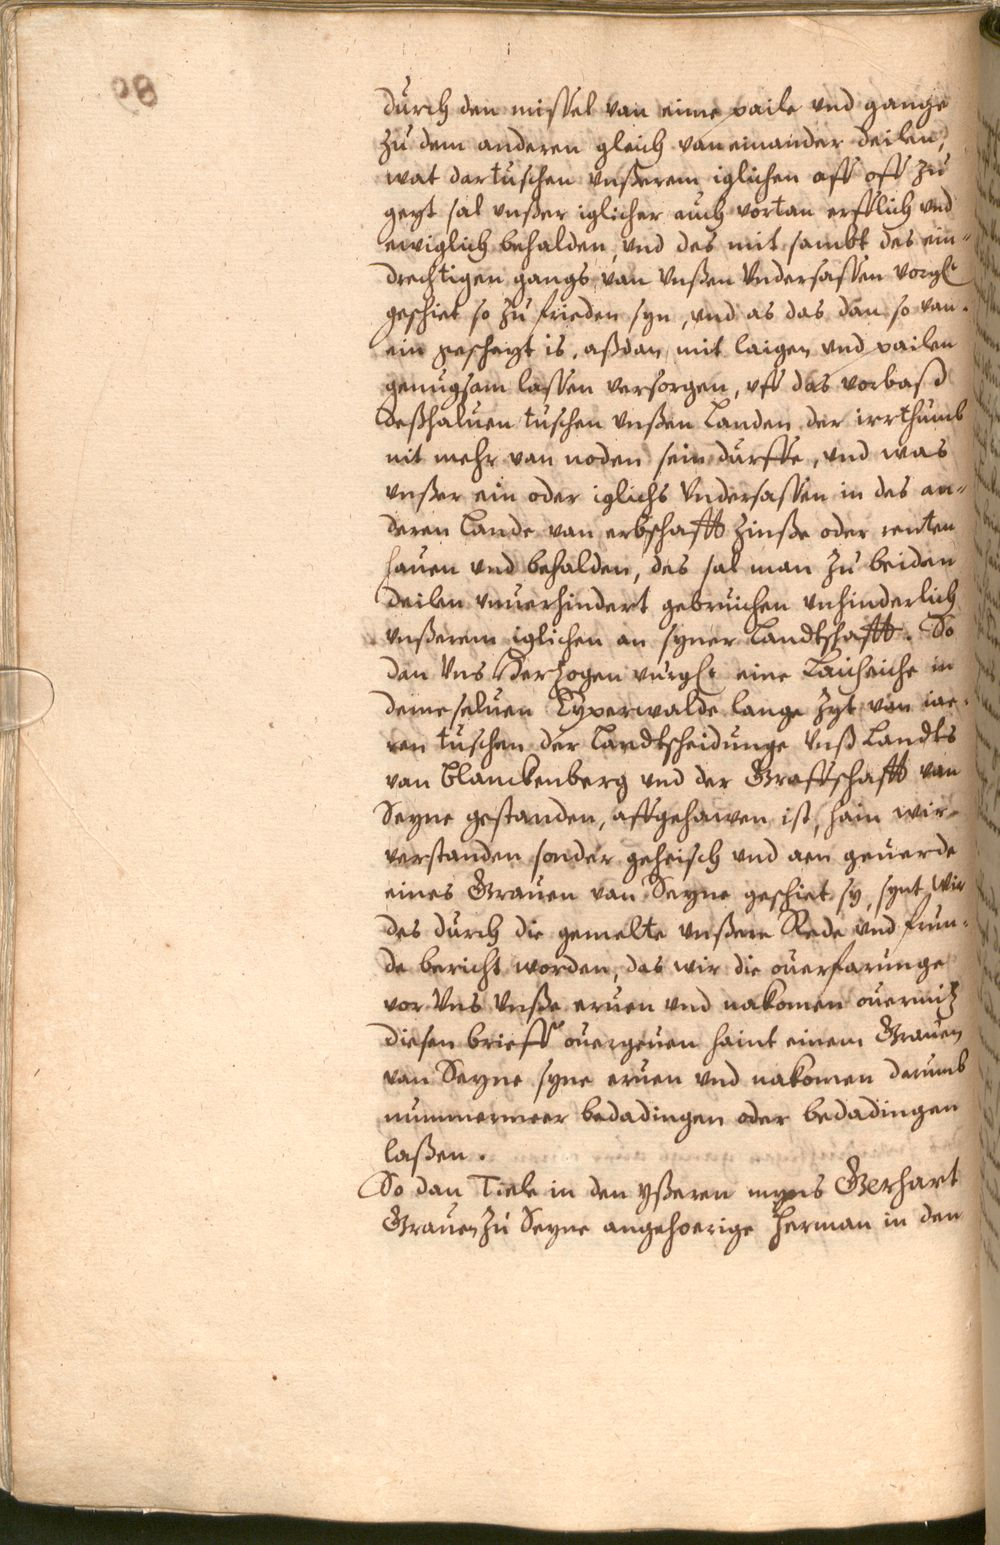 98
durch den missel van eime paile vnd gange
zu dem anderen gleich van einander deilen,
wat dartuschen vnßerem iglichen aff off zu
geyt sal vnßer iglicher auch vortan erfflich vnd
ewiglich behalden, vnd des mit sambt des ein-
drechtigen gangs van vnßen Vndersassen vorgl.
geschiet so zu frieden syn, vnd as das dan so van-
ein gescheyt is, aßdan mit laigen vnd pailen
genugsam lassen versorgen, vff das vorbaß
deßhaluen tuschen vnßen Landen der irrthumb
nit mehr van noden sein durffe, vnd was
vnßer ein oder iglichs Vndersassen in des an-
deren Lande van erbschafft zinße oder renten
hauen vnd behalden, des sal man zu beiden
deilen vnuerhindert gebruichen vnhinderlich
vnßerem iglichen an syner Landtschafft. So
dan Vns Hertzogen vurgl. eine Laicheiche in
deme seluen Lyperwalde lange zyt van iae-
ren tuschen der Landtscheidunge vnß Landts
van Blanckenberg vnd der Graffschafft van
Seyne gestanden, affgehawen ist, hain wir
verstanden sonder geheisch vnd aen geuerde
eines Grauen van Seyne geschiet sy, synt wir
des durch die gemelte vnßere Rede vnd frun-
de bericht worden, das wir die ouerfarunge
vor Vns Vnße eruen vnd nakomen ouermitz
diesen brieff ouergeuen haint einem Grauen
van Seyne syne eruen vnd nakomen darumb
nummermeer bedadingen oder bedadingen
laßen.
So dan Tiele in den yßeren myns Gerhart
Grauen zu Seyne angehoerige Herman in den